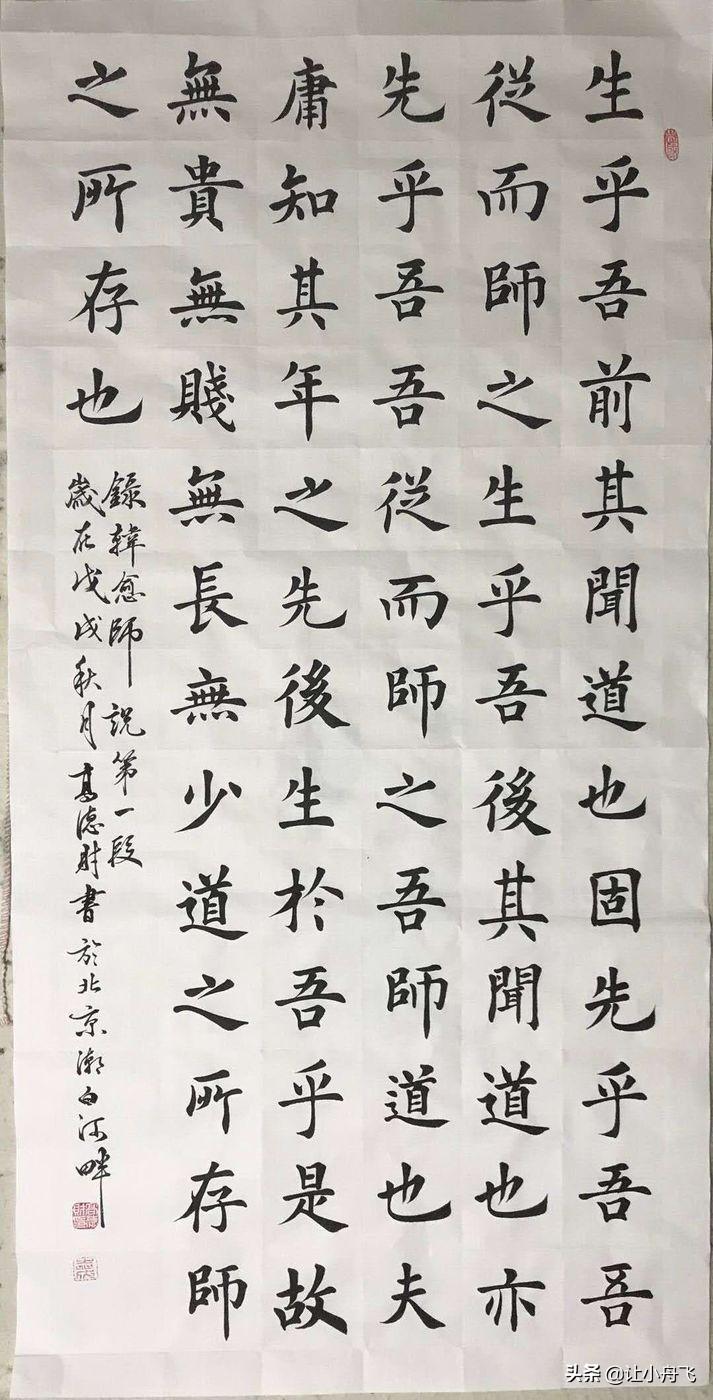 生乎吾前其聞道也固先乎吾吾
從而師之生乎吾後其聞道也亦
先乎吾吾從而師之吾師道也夫
庸知其年之先後生於吾乎是故
無貴無賤無長無少道之所存師
之所存也
錄韓愈師説第一段
歲在戊戌秋月高德財書於北京潮白河畔
头条 @让小舟飞